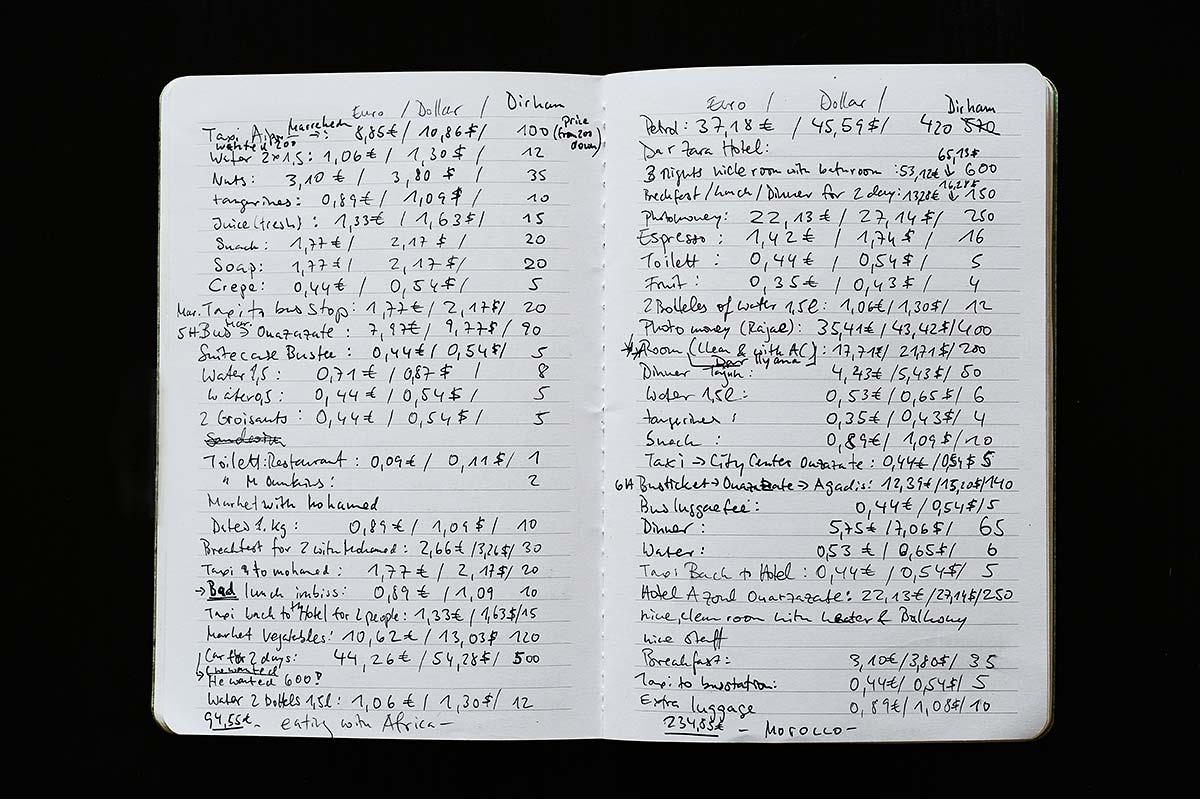 Euro / Dollar / Dirham
Taxi Marrakech → : 8,85€ / 10,86$ / 100 price (from 200 down)
wanted 200
Water 2x1,5: 1,06€ / 1,30$ / 12
Nuts: 3,10€ / 3,80$ / 35
tangerines: 0,89€ / 1,09$ / 10
Juice (fresh): 1,33€ / 1,63$/ 15
Snack: 1,77€/ 2,17$ / 20
Soap: 1,77€/ 2,17$/ 20
Crepe: 0,44€ / 0,54$/ 5
Mar. Taxi to bus Stop: 1,77€/ 2,17$/ 20
5H Bus Mar. → Ouazazate: 7,97€/ 9,77$/ 90
Suitecase Bustee: 0,44€/ 0,54$/ 5
Water 1,5: 0,71€ / 0,87$ / 8
Water 0,5: 0,44€ / 0,54$/ 5
2 Croisants: 0,44€ / 0,54$/ 5
Toilett: Restaurant: 0,09€ / 0,11$/ 1
" Mountains: 2
Market with Mohamed
Dates 1.kg: 0,89€ / 1,09$ / 10
Breakfest for 2 with Mohamed: 2,66€/3,26$/ 30
Taxi to mohamed: 1,77€ / 2,17$/ 20
→ Bad lunch imbiss: 0,89€ / 1,09 10
Taxi back to the Hotel for 2 people: 1,33€/ 1,63$/15
Market Vegetables: 10,62€ / 13,03$ 120
Car for 2 days: 44,26€ / 54,28$/ 500
He wanted 600!
Water 2 bottels 1,5l: 1,06€ / 1,30$/ 12
94,55€ - eating with Africa -
Euro / Dollar / Dirham
Petrol: 37,18€ / 45,59$/ 420 570
Dar Zara Hotel:
3 nights nice room with bathroom: 53,12€ ↓ 65,13$ 600
Breckfest/lunch/Dinner for 2 day: 13,28€ ↓ 16,28$ 150
Photomoney: 22,13€ / 27,14$/ 250
Espresso: 1,42€ / 1,74$ / 16
Toilett: 0,44€ / 0,54$/ 5
Fruit: 0,35€ / 0,43$/ 4
2 Botteles of water 1,5l: 1,06€/1,30$/ 12
Photo money (Rajae): 35,41€/43,42$/400
Room (Clean & with AC): 17,71€/ 21,71$/200
Dar Ilyana
Dinner Tajin: 4,43€/5,43$/ 50
Water 1,5l: 0,53€/0,65$/ 6
tangerines: 0,35€/0,43$/ 4
Snack: 0,89€/ 1,09$/10
Taxi → City Center Ouazazate: 0,44€/0,54$ 5
6H Busticket → Ouazazate → Agadis: 12,39€/15,20$/140
Bus luggaefee: 0,44€/0,54$/5
Dinner: 5,75€/7,06$/ 65
Water: 0,53€/ 0,65$/ 6
Taxi Back to Hotel: 0,44€/ 0,54$/ 5
Hotel Azoul Ouarzazate: 22,13€/27,14$/250
nice, clean room with heater & Balkony
nice staff
Breakfast: 3,10€/3,80$/ 35
Taxi to busstation: 0,44€/ 0,54$/ 5
Extra luggage 0,89€/ 1,08$/10
234,85€ - MOROCCO -